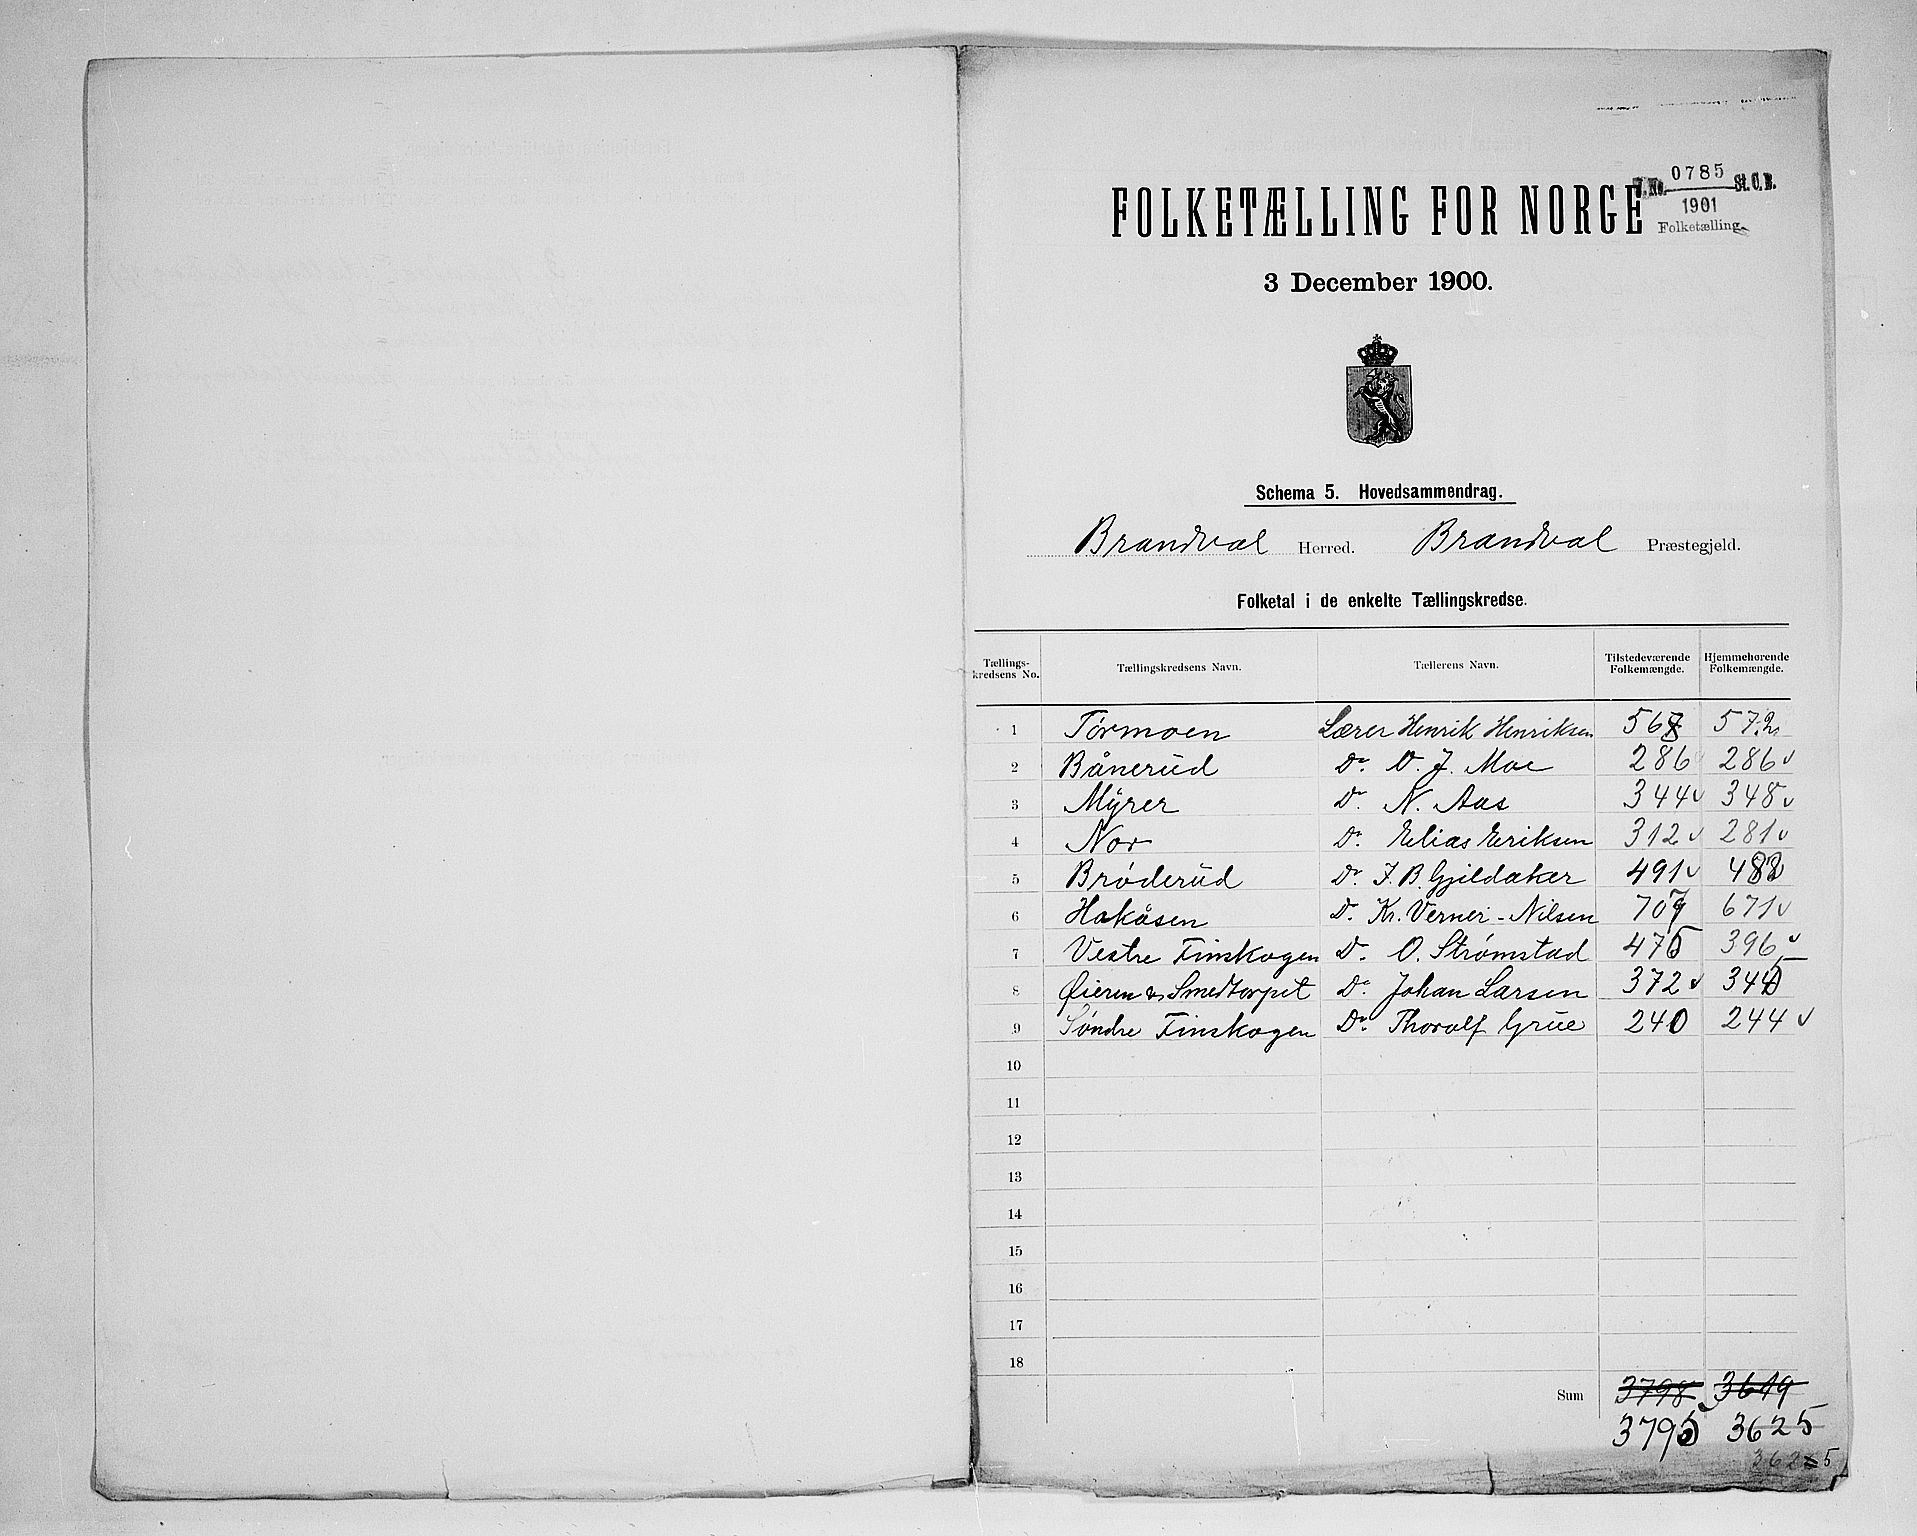 J. No. 0785 St. C. B.
1901
Folketælling.
FOLKETÆLLING FOR NORGE
3 December 1900.
Schema 5. Hovedsammendrag.
Brandval Herred. Brandval Præstegjeld.
Folketal i de enkelte Tællingskredse.
Tællings-kredsens No. Tællingskredsens Navn. Tællerens Navn. Tilstedeværende Folkemængde. Hjemmehørende Folkemængde.
1 Tørmoen Lærer Henrik Henriksen 568 572
2 Bånerud Do. O. J. Moe 286 286 v
3 Myrer Do. N. Aas 344 v 348 v
4 Nor Do. Elias Eriksen 312 v 281 v
5 Brøderud Do. J. B. Gjeldaker 491 v 483
6 Hakåsen Do. Kr. Verner-Nilsen 707 671 v
7 Vestre Finskogen Do. O. Strømstad 475 396 v
8 Øieren & Smedtorpet Do. Johan Larsen 372 v 344
9 Søndre Finskogen Do. Thorolf Grue 240 244 v
10
11
12
13
14
15
16
17
18
Sum 3798 3619
3795 3625
3625